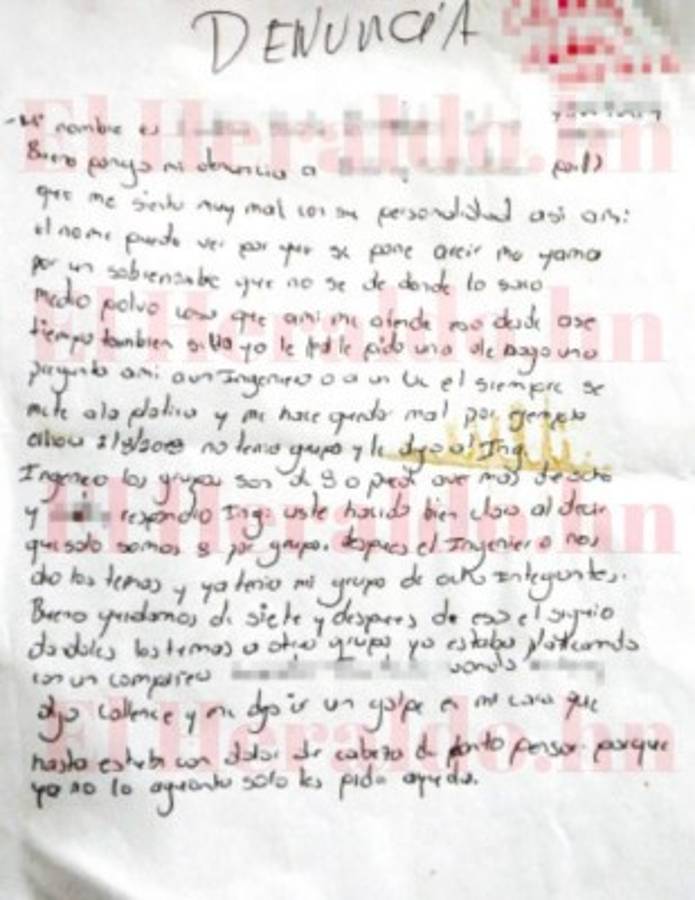 DENUNCIA
-Mi nombre es
Bueno pongo mi denuncia a por())
que me siento muy mal con su personalidad asi ami:
el no me puede ver por que se pone a decir me yama
por un sobrenombre que no se de donde lo saco
medio polvo cosa que ami me ofende eso desde ase
tiempo tambien si yo le pido una le hago una
pregunta ami a un Ingeniero o a un Lic el siempre se
mete ala platica y me hace quedar mal por ejemplo
ahora no tenia grupo y le dije al Ing.
Ingeniero los grupos son de 8 o puede aver mas de ocho
y respondio Ing: uste hacido bien claro al decir
que solo somos 8 por grupo. despues el Ingeniero nos
dio los temas y ya tenia mi grupo de ocho integrantes.
Bueno quedamos de siete y despues de eso el siguio
dandoles los temas a otros grupos yo estaba platicando
con un compañero
dijo callence y me dejo ir un golpe en mi cara que
hasta estube con dolor de cabeza de tanto pensar porque
yo no lo aguanto solo les pido ayuda.
El Heraldo.hn
El Heraldo.hn
El Heraldo.hn
El Heraldo.hn